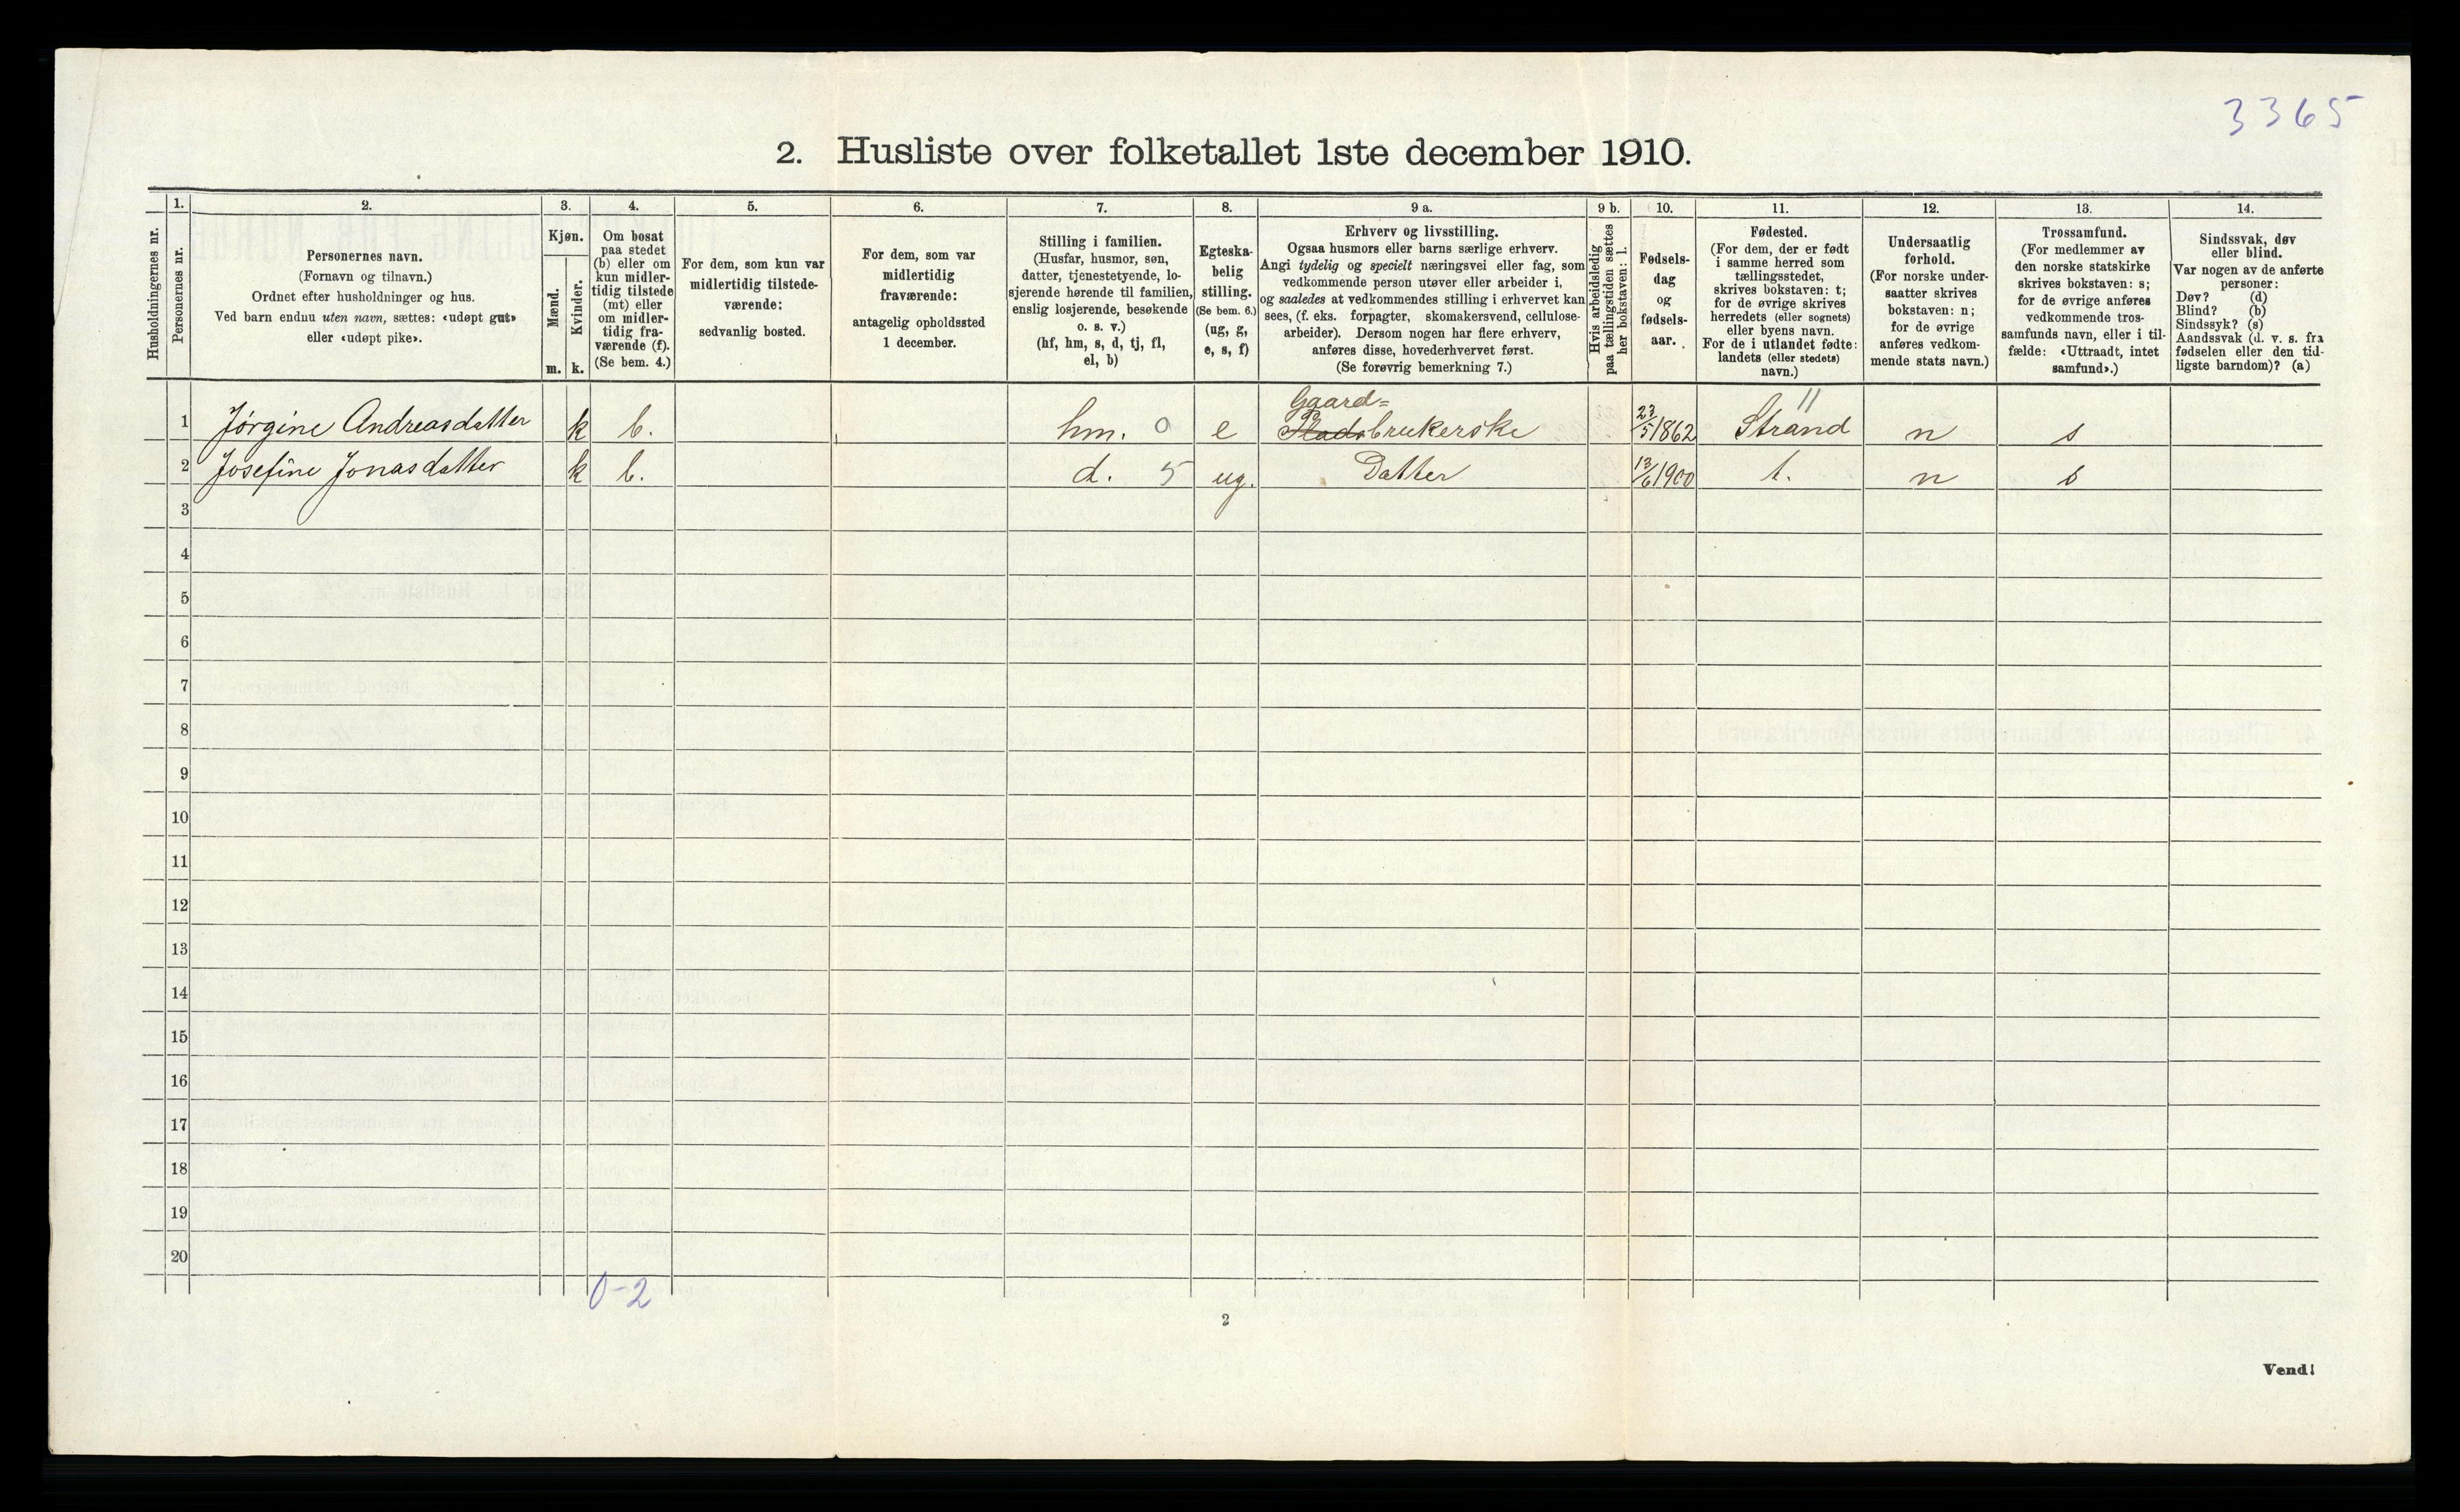 3365
2. Husliste over folketallet 1ste december 1910.
Husholdningernes nr.
1.
Personernes nr.
2.
Personernes navn.
(Fornavn og tilnavn.)
Ordnet efter husholdninger og hus.
Ved barn endnu uten navn, sættes: «udøpt gut»
eller «udøpt pike».
3.
Kjøn.
Mænd.
Kvinder.
m. k.
4.
Om bosat
paa stedet
(b) eller om
kun midler-
tidig tilstede
(mt) eller
om midler-
tidig fra-
værende (f).
(Se bem. 4.)
5.
For dem, som kun var
midlertidig tilstede-
værende:
sedvanlig bosted.
6.
For dem, som var
midlertidig
fraværende:
antagelig opholdssted
1 december.
7.
Stilling i familien.
(Husfar, husmor, søn,
datter, tjenestetyende, lo-
sjerende hørende til familien,
enslig losjerende, besøkende
o. s. v.)
(hf, hm, s, d, tj, fl,
el, b)
8.
Egteska-
belig
stilling.
(Se bem. 6.)
(ug, g,
e, s, f)
9 a.
Erhverv og livsstilling.
Ogsaa husmors eller barns særlige erhverv.
Angi tydelig og specielt næringsvei eller fag, som
vedkommende person utøver eller arbeider i,
og saaledes at vedkommendes stilling i erhvervet kan
sees, (f. eks. forpagter, skomakersvend, cellulose-
arbeider). Dersom nogen har flere erhverv,
anføres disse, hovederhvervet først.
(Se forøvrig bemerkning 7.)
9 b.
Hvis arbeidsledig
paa tællingstiden sættes
her bokstaven: l.
10.
Fødsels-
dag
og
fødsels-
aar.
11.
Fødested.
(For dem, der er født
i samme herred som
tællingsstedet,
skrives bokstaven: t;
for de øvrige skrives
herredets (eller sognets)
eller byens navn.
For de i utlandet fødte:
landets (eller stedets)
navn.)
12.
Undersaatlig
forhold.
(For norske under-
saatter skrives
bokstaven: n;
for de øvrige
anføres vedkom-
mende stats navn.)
13.
Trossamfund.
(For medlemmer av
den norske statskirke
skrives bokstaven: s;
for de øvrige anføres
vedkommende tros-
samfunds navn, eller i til-
fælde: «Uttraadt, intet
samfund».)
14.
Sindssvak, døv
eller blind.
Var nogen av de anførte
personer:
Døv? (d)
Blind? (b)
Sindssyk? (s)
Aandssvak (d. v. s. fra
fødselen eller den tid-
ligste barndom)? (a)
Gaard= 11
1 Jørgine Andreasdatter k b. hm. 0 e Pladsbrukerske 23/5 1862 Strand n s
2 Josefine Jonasdatter k b. d. 5 ug. Datter 13/6 1900 t. n s
3
4
5
6
7
8
9
10
11
12
13
14
15
16
17
18
19
20
0-2
2
Vend!